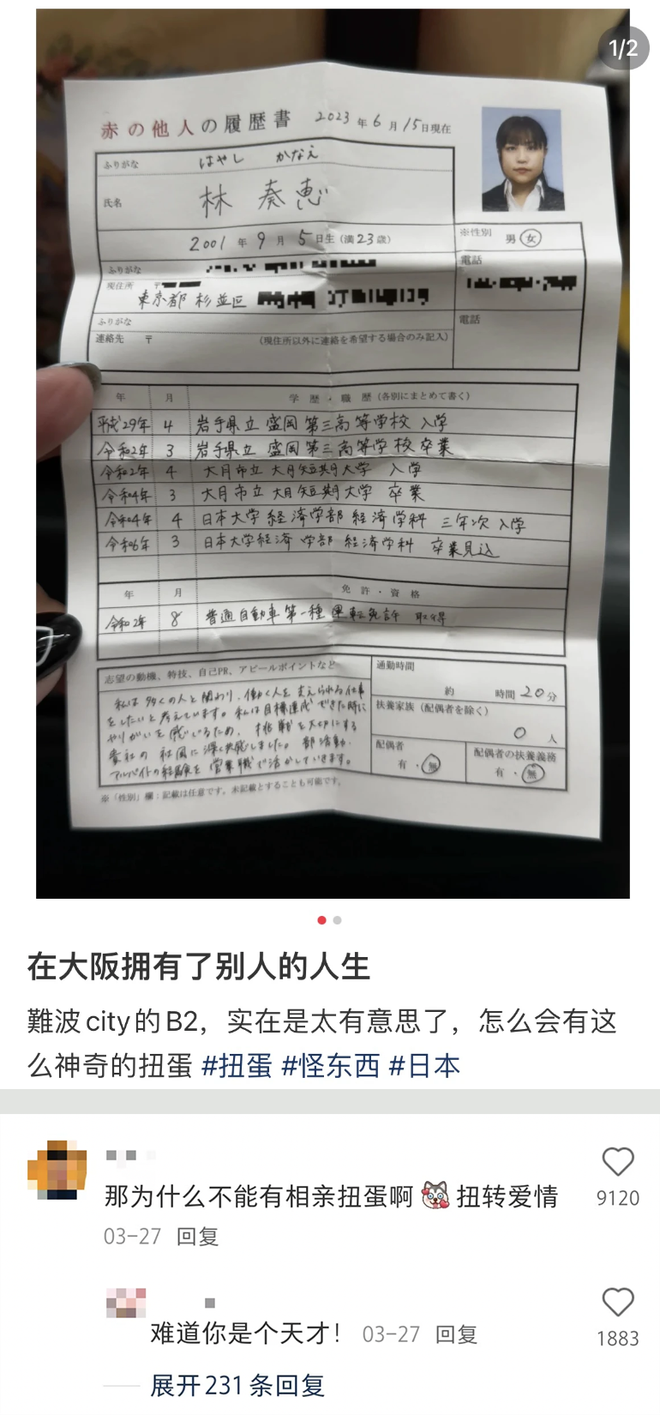 1/2
赤の他人の履歴書 2023年6月15日現在
ふりがな はやし かなえ
氏名 林 奏恵
2001年9月5日生(満23歳)
※性別 男・女
ふりがな
電話
現住所 〒
東京都 杉並区
ふりがな
電話
連絡先 〒 (現住所以外に連絡を希望する場合のみ記入)
年 月 学歴・職歴(各別にまとめて書く)
平成29年 4 岩手県立 盛岡第三高等学校 入学
令和2年 3 岩手県立 盛岡第三高等学校 卒業
令和2年 4 大月市立 大月短期大学 入学
令和4年 3 大月市立 大月短期大学 卒業
令和4年 4 日本大学 経済学部 経済学科 三年次 入学
令和6年 3 日本大学経済学部 経済学科 卒業見込
年 月 免許・資格
令和2年 8 普通自動車第一種運転免許 取得
志望の動機、特技、自己PR、アピールポイントなど
私は多くの人と関わり、働く人を支えられる仕事
をしたいと考えています。私は目標達成できた時に
やりがいを感じるため、挑戦を大切にする
貴社の社風に深く共感しました。部活動、
アルバイトの経験を営業職で活かしていきます。
通勤時間
約 時間 20分
扶養家族(配偶者を除く)
0人
配偶者
有・無
配偶者の扶養義務
有・無
※「性別」欄:記載は任意です。未記載とすることも可能です。
在大阪拥有了别人的人生
難波city的B2，实在是太有意思了，怎么会有这
么神奇的扭蛋 #扭蛋 #怪东西 #日本
那为什么不能有相亲扭蛋啊 扭转爱情
9120
03-27 回复
难道你是个天才！ 03-27 回复
1883
展开231条回复